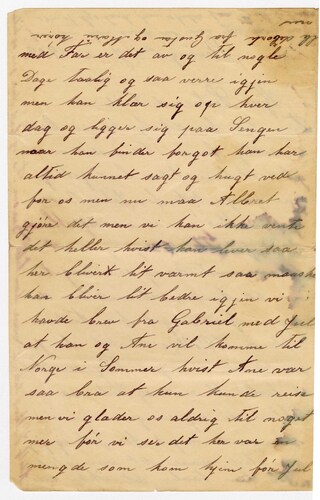 med Far er det av og til nogle
Dage taalig og saa verre igjen
men han klær sig op hver
dag og ligger sig paa Sengen
naar han finder forgot han har
altid kunnet sagt og hugt ved
for os men nu maa Albret
gjöre det men vi kan ikke vente
det heller hvist han lever saa
her blivert lit varmt saa manske
han bliver lit bedre igjen vi
havde brev fra Gabriel med Jul
at han og Ane vil komme til
Norge i Sommer hvist Ane var
saa bra at hun kunde reise
men vi glader os aldrig til noget
mer för vi ser det her var en
mengde som kom hjem för Jul